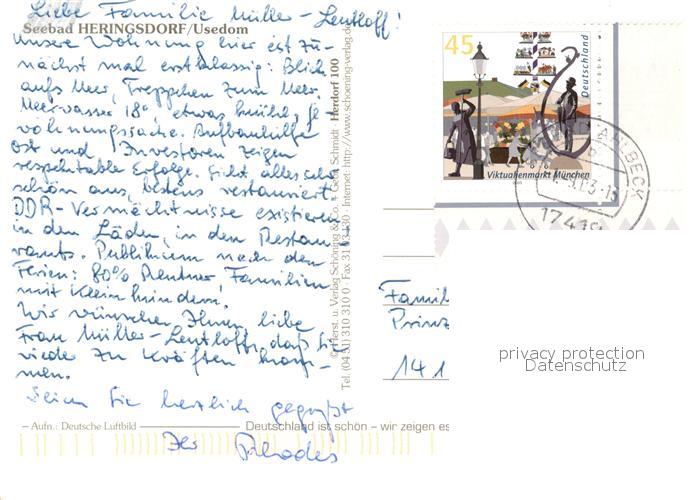 Liebe Familie Müller-Leutloff!
Seebad HERINGSDORF/Usedom
Unsere Wohnung hier ist zu-
nächst mal erstklassig: Blick
aufs Meer, Treppchen zum Meer,
Meerwasser 18° etwas kühl, Ge-
wöhnungssache. Aufbauhilfe
Ost und Investoren zeigen
respektable Erfolge. Sieht alles sehr
schön aus, bestens restauriert.
DDR-Vermächtnisse existieren
in den Läden, in den Restau-
rants. Publikum nach den
Ferien: 80% Rentner, Familien
mit Kleinkindern!
Wir wünschen Ihnen, liebe
Frau Müller-Leutloff, daß Sie
wieder zu Kräften kom-
men.
Seien Sie herzlich gegrüßt
Ihr Rhodes
– Aufn.: Deutsche Luftbild
Deutschland ist schön – wir zeigen es
Herst. u. Verlag Schöning & Co. + Gebr. Schmidt
Herdorf 100
Tel. (04 51) 310 310 0 · Fax 31 03 130 · Internet: http://www.schoening-verlag.de
45
Deutschland
Viktualienmarkt München
2003
AHLBECK
17419
Famil
Prinz
141
privacy protection
Datenschutz